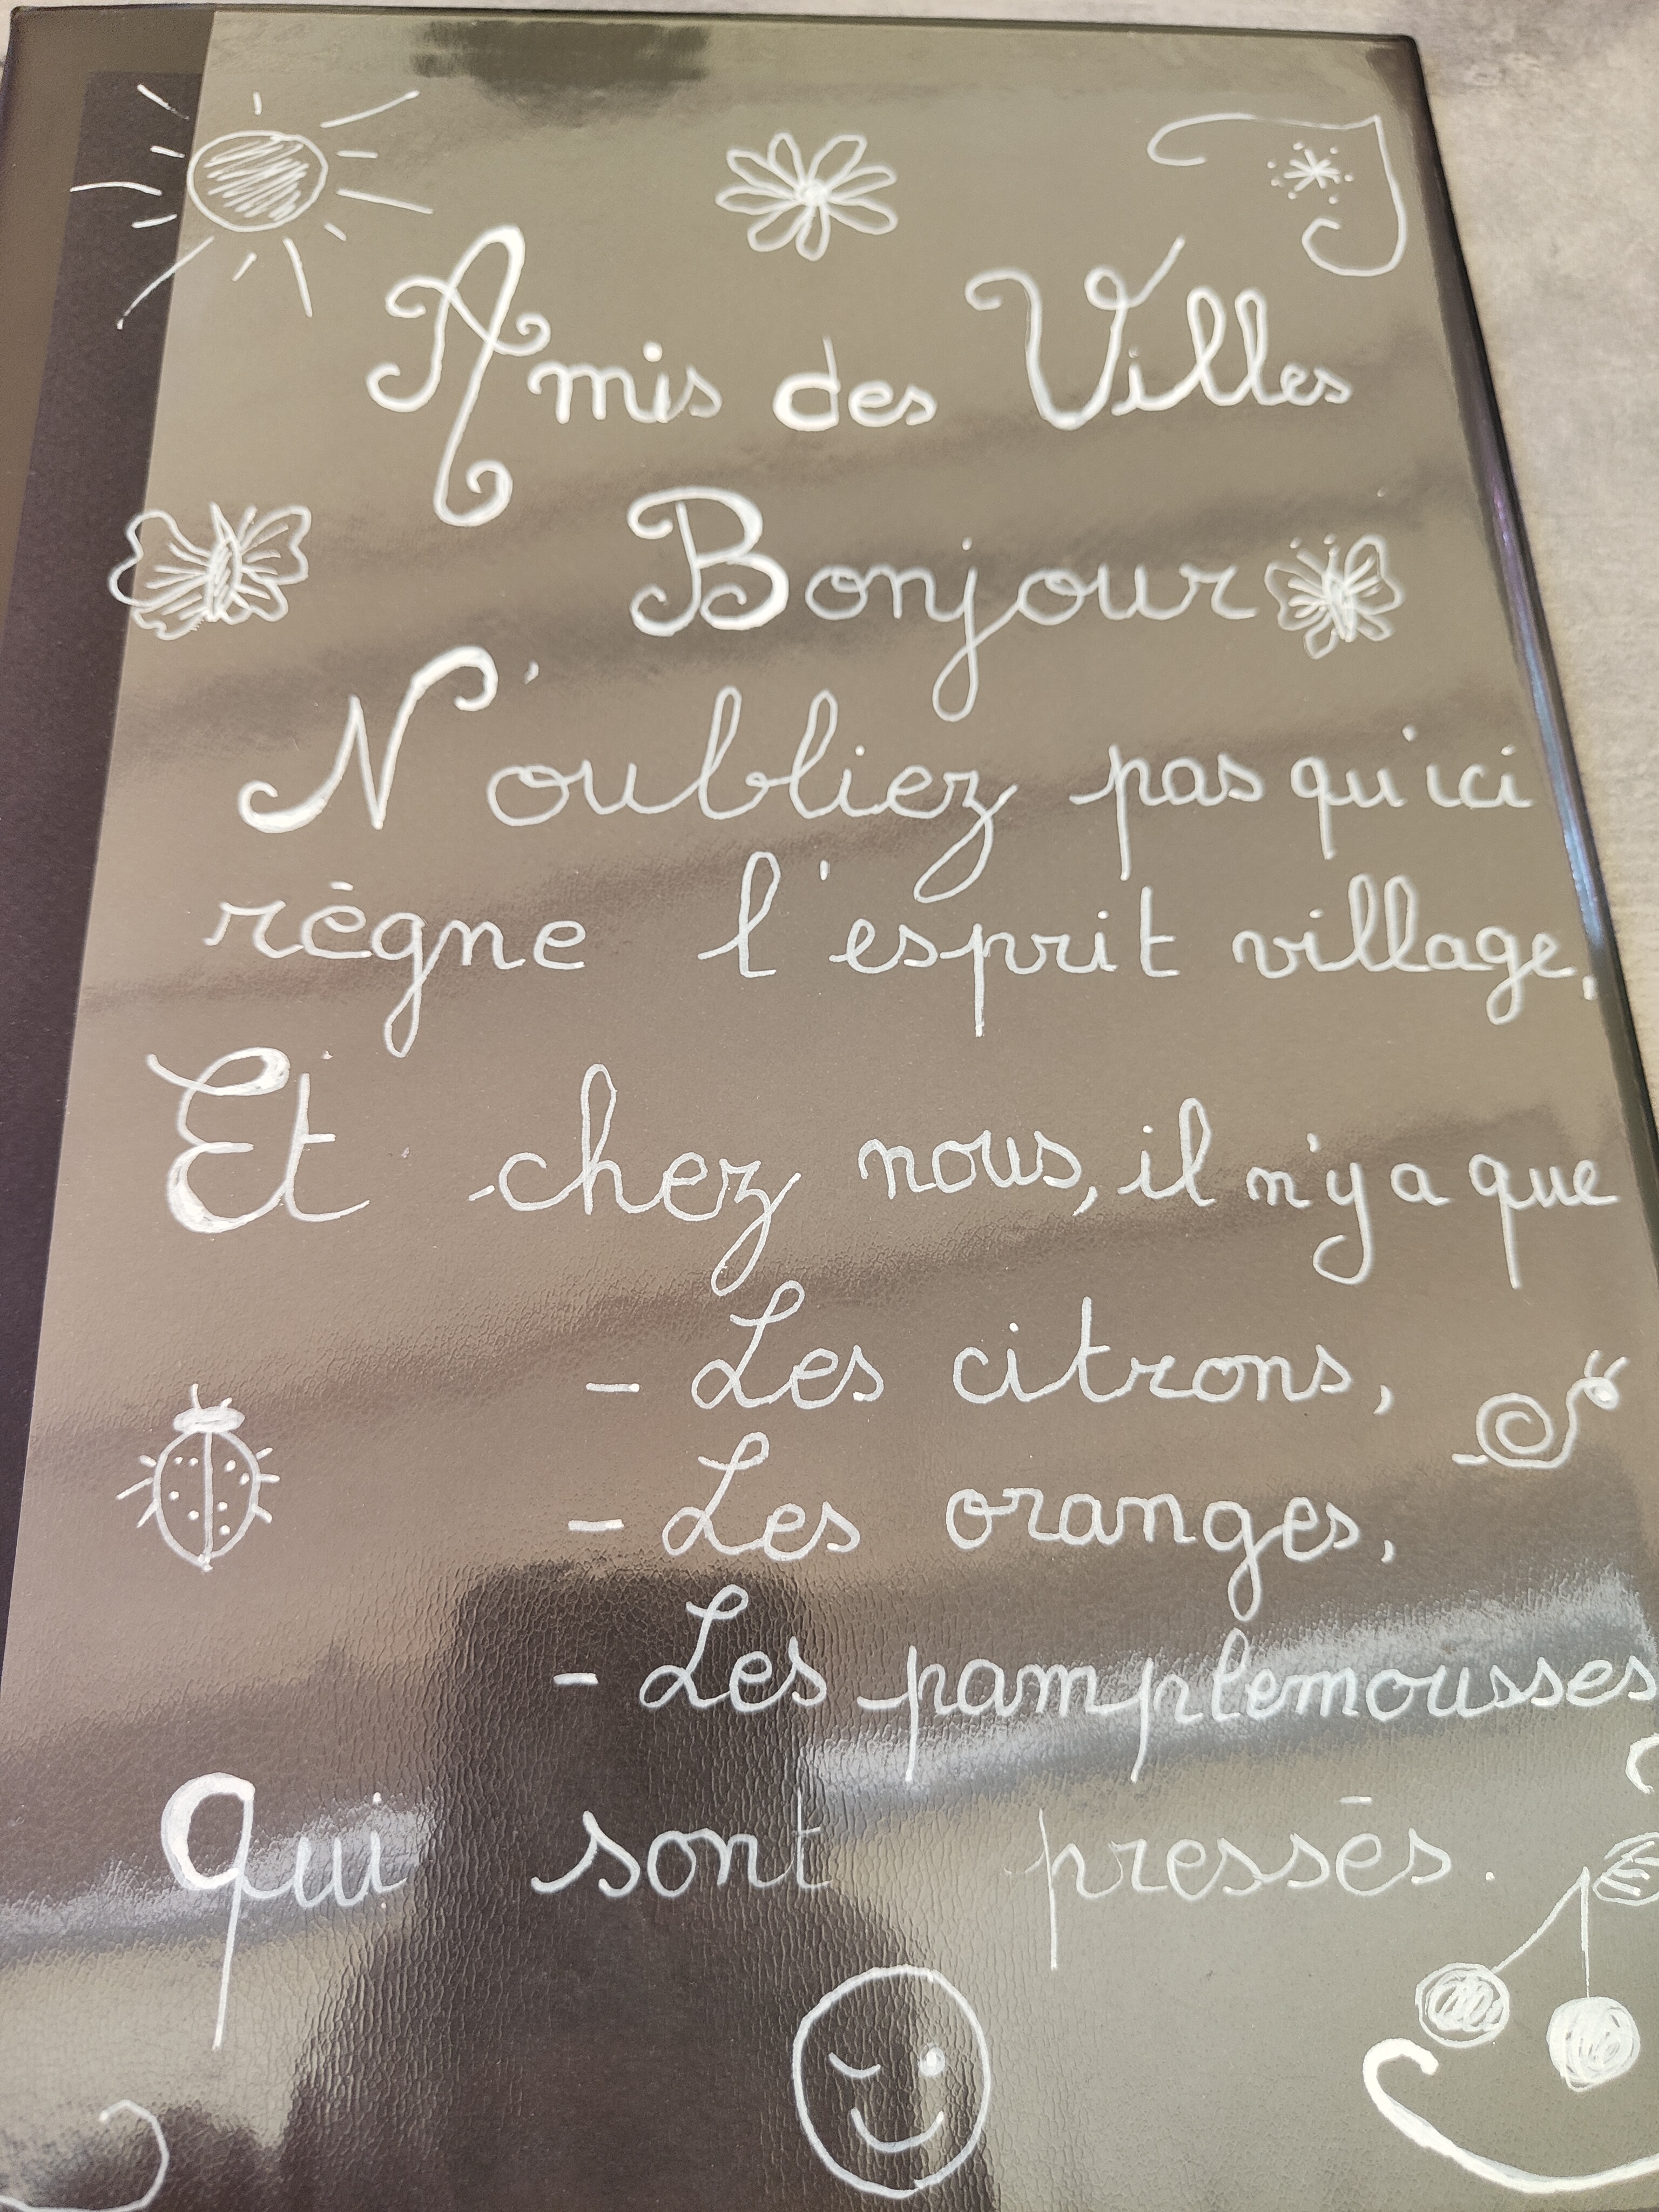 Amis des Villes
Bonjour
N'oubliez pas qu'ici
règne l'esprit village.
Et chez nous, il n'y a que
- Les citrons,
- Les oranges,
- Les pamplemousses
Qui sont pressés.